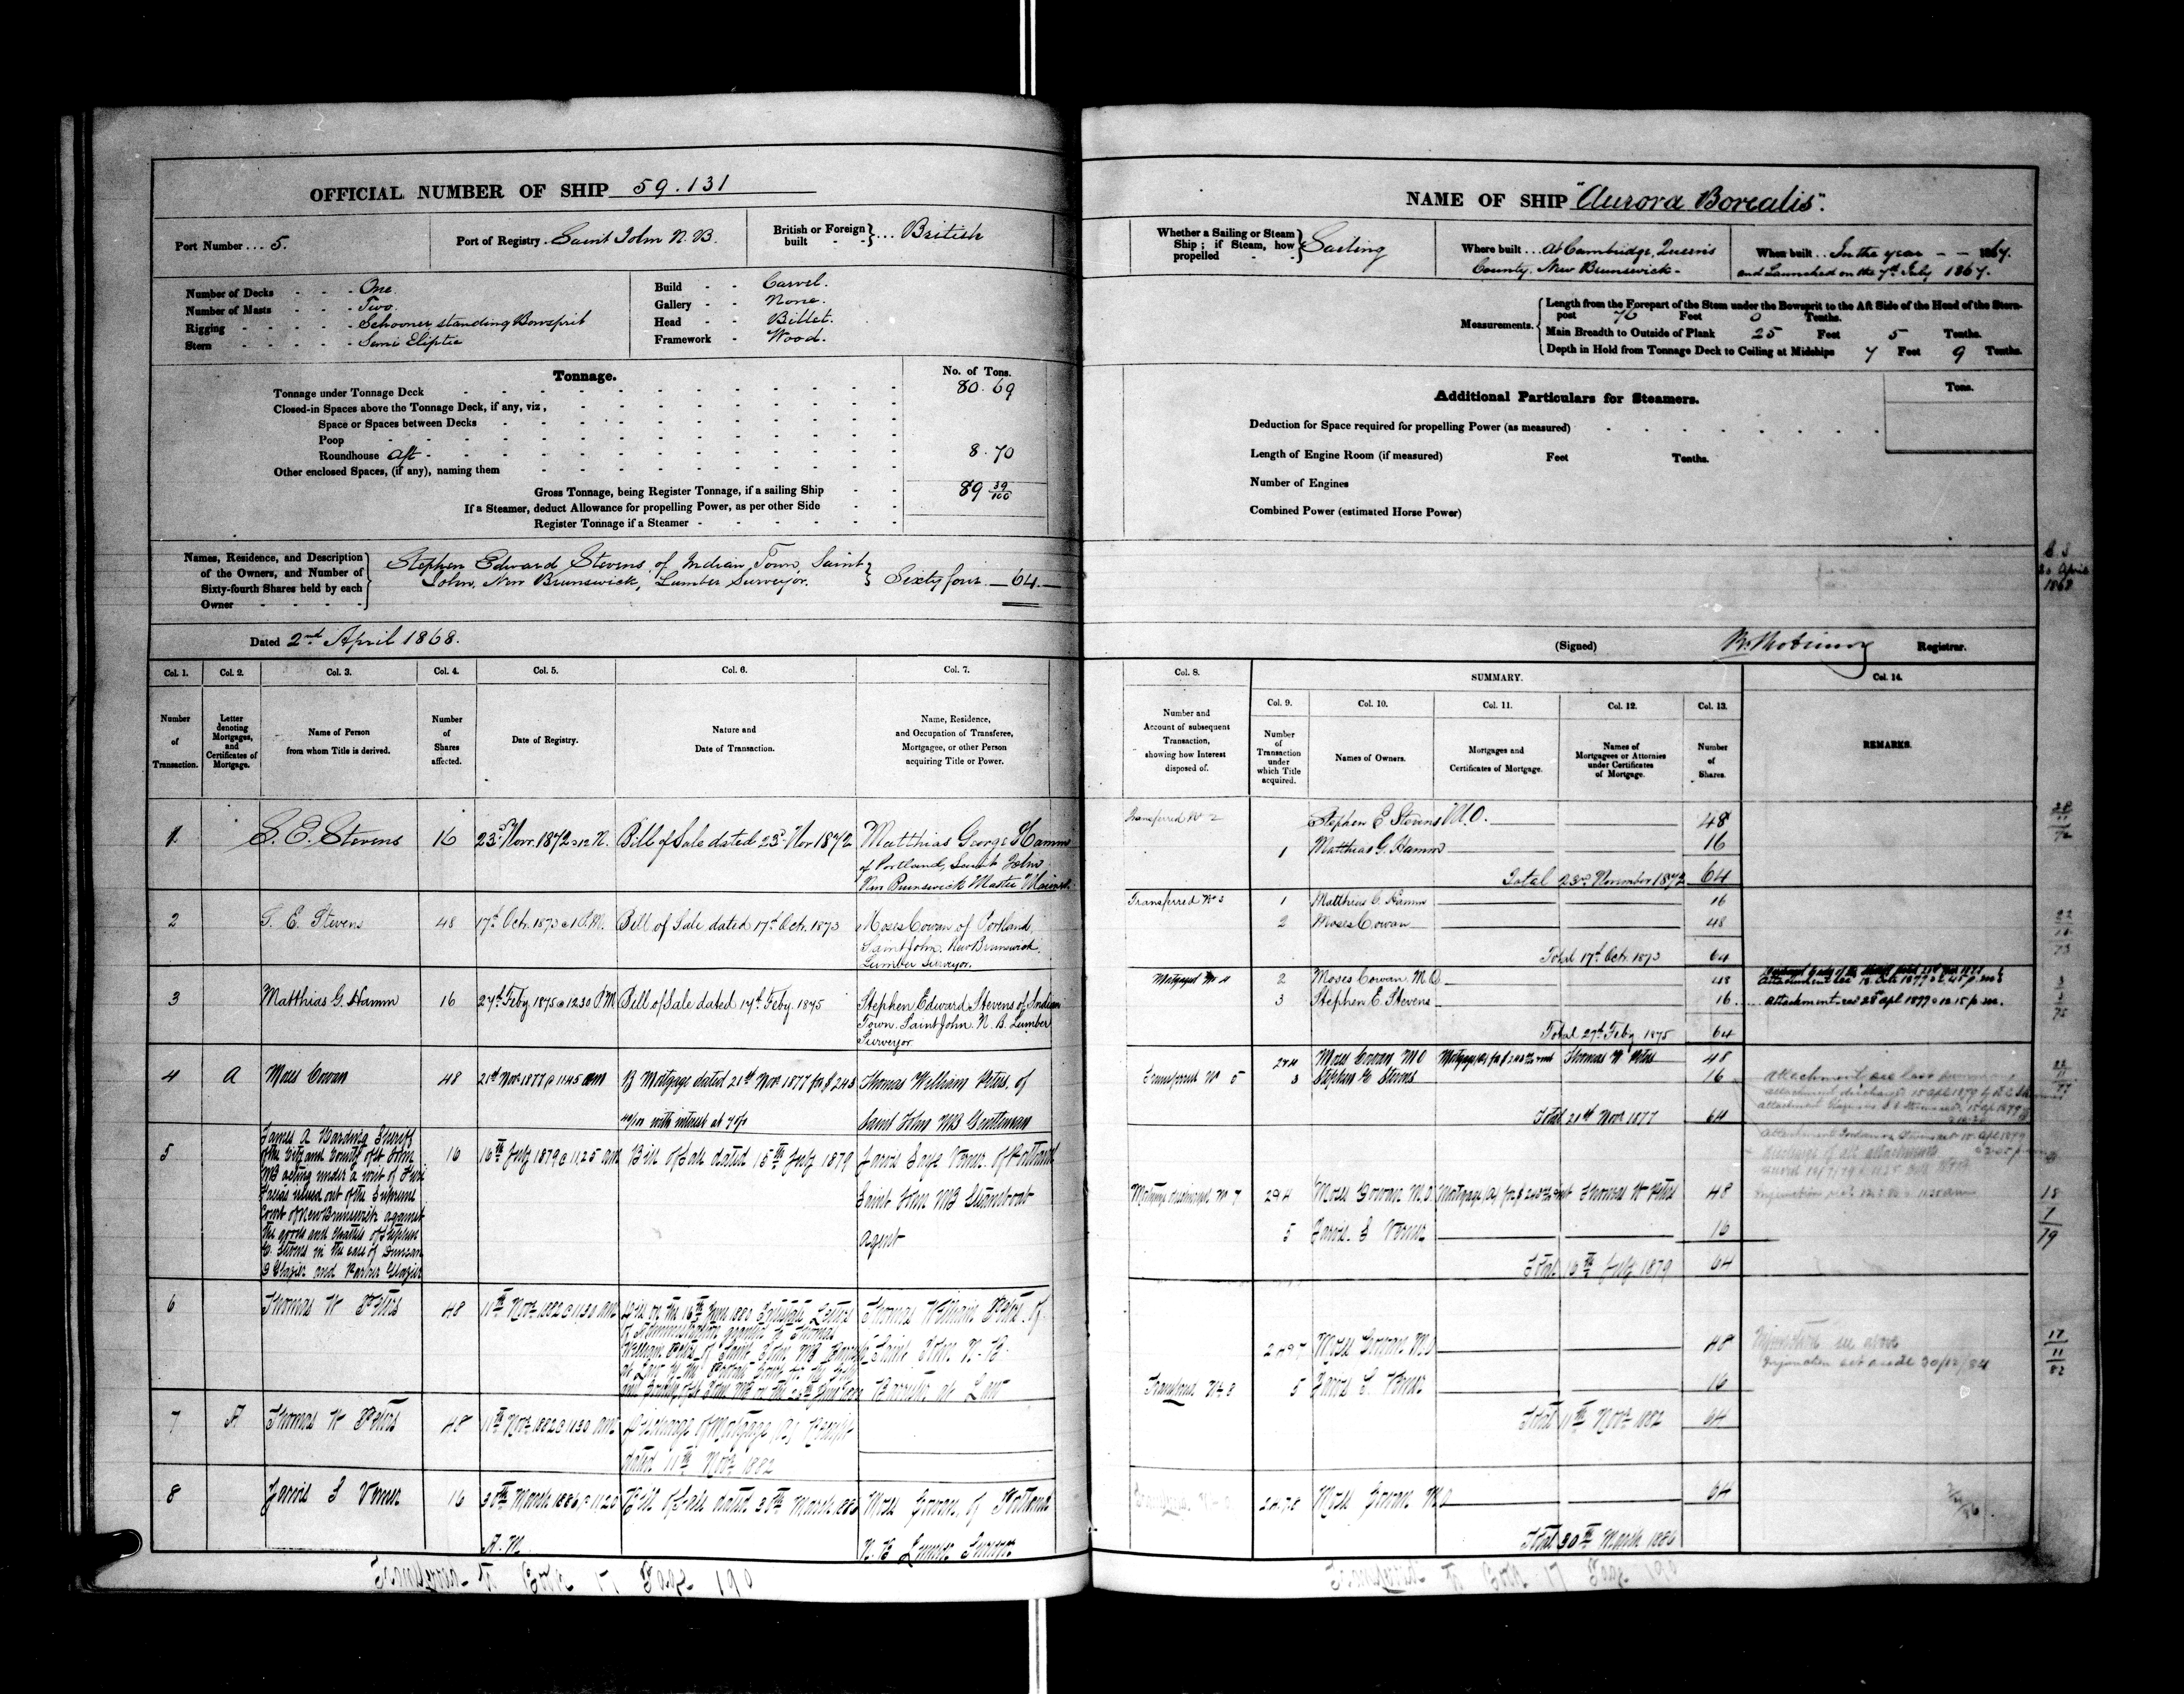 OFFICIAL NUMBER OF SHIP 59.131
Port Number ... 5.
Port of Registry. Saint John N. B.
British or Foreign built } ... British
Number of Decks - - - One.
Number of Masts - - - Two.
Rigging - - - - - Schooner standing Bowsprit
Stern - - - - - Semi Eliptic
Build - - Carvel.
Gallery - - None.
Head - - Billet.
Framework - Wood.
Tonnage.
No. of Tons.
Tonnage under Tonnage Deck 80.69
Closed-in Spaces above the Tonnage Deck, if any, viz,
Space or Spaces between Decks
Poop
Roundhouse Aft - 8.70
Other enclosed Spaces, (if any), naming them
Gross Tonnage, being Register Tonnage, if a sailing Ship 89 39/100
If a Steamer, deduct Allowance for propelling Power, as per other Side
Register Tonnage if a Steamer
Names, Residence, and Description of the Owners, and Number of Sixty-fourth Shares held by each Owner
Stephen Edward Stevens of Indian Town, Saint
John, New Brunswick, Lumber Surveyor. } Sixty four — 64.
Dated 2nd April 1868.
Col. 1. Col. 2. Col. 3. Col. 4. Col. 5. Col. 6. Col. 7.
Number of Transaction.
Letter denoting Mortgages, and Certificates of Mortgage.
Name of Person from whom Title is derived.
Number of Shares affected.
Date of Registry.
Nature and Date of Transaction.
Name, Residence, and Occupation of Transferee, Mortgagee, or other Person acquiring Title or Power.
1 S. E. Stevens 16 23rd Novr. 1872 @ 12 N. Bill of Sale dated 23rd Nov 1872 Matthias George Hamm
of Portland, Saint John
New Brunswick Master Mariner
2 S. E. Stevens 48 17th Oct. 1873 @ 1 P.M. Bill of Sale dated 17th Oct. 1873 Moses Cowan of Portland,
Saint John, New Brunswick,
Lumber Surveyor.
3 Matthias G. Hamm 16 27th Feby 1875 @ 12.30 P.M. Bill of Sale dated 17th Feby. 1875 Stephen Edward Stevens of Indian
Town. Saint John N. B. Lumber
Surveyor
4 A Moses Cowan 48 21st Nov 1877 @ 11.45 am B Mortgage dated 21st Nov 1877 for $ 243 Thomas William Peters of
with interest at 7 o/o Saint John NB Gentleman
5 James A Harding Sheriff
of the City and County of St John
NB acting under a writ of Fieri
Facias issued out of the Supreme
Court of New Brunswick against
the goods and chattles of Stephen
E. Stevens in the case of Duncan
D Glazier and Parker Glazier
16 16th July 1879 @ 11.25 am Bill of Sale dated 15th July 1879 Jarvis Saye Verner of Portland
Saint John NB Steamboat
Agent
6 Thomas W Peters 48 11th Novr 1882 @ 11.30 am
Thomas William Peters of
Saint John N. B.
Barrister at Law
7 A Thomas W Peters 48 11th Novr 1882 @ 11.30 am Discharge of Mortgage (A) Receipt
dated 11th Novr 1882
8 Jarvis S Verner 16 30th March 1886 @ 11.20 Bill of Sale dated 30th March 1886 Moses Cowan of Portland
A. M. N. B Lumber Surveyor
NAME OF SHIP "Aurora Borealis".
Whether a Sailing or Steam Ship; if Steam, how propelled } Sailing
Where built ... At Cambridge, Queens
County, New Brunswick -
When built .. In the year - - 1867.
and Launched on the 7th July 1867.
Measurements.
Length from the Forepart of the Stem under the Bowsprit to the Aft Side of the Head of the Stern-
post 76 Feet 0 Tenths.
Main Breadth to Outside of Plank 25 Feet 5 Tenths.
Depth in Hold from Tonnage Deck to Ceiling at Midships 7 Feet 9 Tenths.
Additional Particulars for Steamers.
Tons.
Deduction for Space required for propelling Power (as measured)
Length of Engine Room (if measured) Feet Tenths.
Number of Engines
Combined Power (estimated Horse Power)
30 April
1868
(Signed) Registrar.
Col. 8. SUMMARY. Col. 14.
Col. 9. Col. 10. Col. 11. Col. 12. Col. 13.
Number and Account of subsequent Transaction, showing how Interest disposed of.
Number of Transaction under which Title acquired.
Names of Owners.
Mortgages and Certificates of Mortgage.
Names of Mortgagees or Attornies under Certificates of Mortgage.
Number of Shares.
REMARKS.
Transferred No 2 Stephen E Stevens M.O. 48
1 Matthias G. Hamm 16
Total 23rd November 1872 64
Transferred No 3 1 Matthias G. Hamm 16
2 Moses Cowan 48
Total 17th Oct. 1873 64
Mortgaged No 4 2 Moses Cowan M.O 48
3 Stephen E. Stevens 16
Attachment rec 28 Apl 1877 @ 12.15 p.m.
Total 27th Feby 1875 64
Transferred No 5 2&4 Moses Cowan MO Thomas W Peters 48
3 Stephen E Stevens 16
Total 21st Novr 1877 64
2&4 Moses Cowan M.O Thomas W Peters 48
5 Jarvis S Verner 16
Total 16th July 1879 64
2.4&7 Moses Cowan M.O 48
Injunction see above
Transferred No. 8 5 Jarvis S. Verner 16
Total 11th Novr 1882 64
2.4.7.8 Moses Cowan M.O 64
Total 30th March 1886